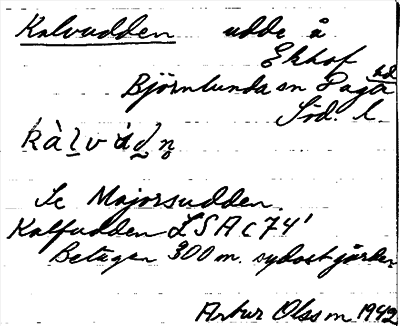 Kalvudden udde å
Ekhof
Björnlunda sn Daga hd
Söd. l.
Se Majorsudden.
Kalfudden LSA C74¹
Belägen 300 m. sydost gården
Artur Olsson 1942